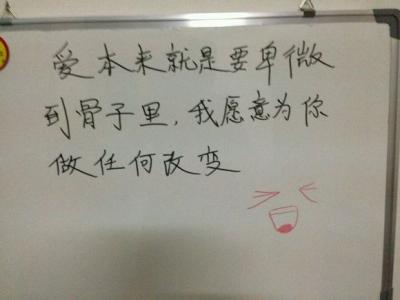 爱本来就是要卑微
到骨子里,我愿意为你
做任何改变